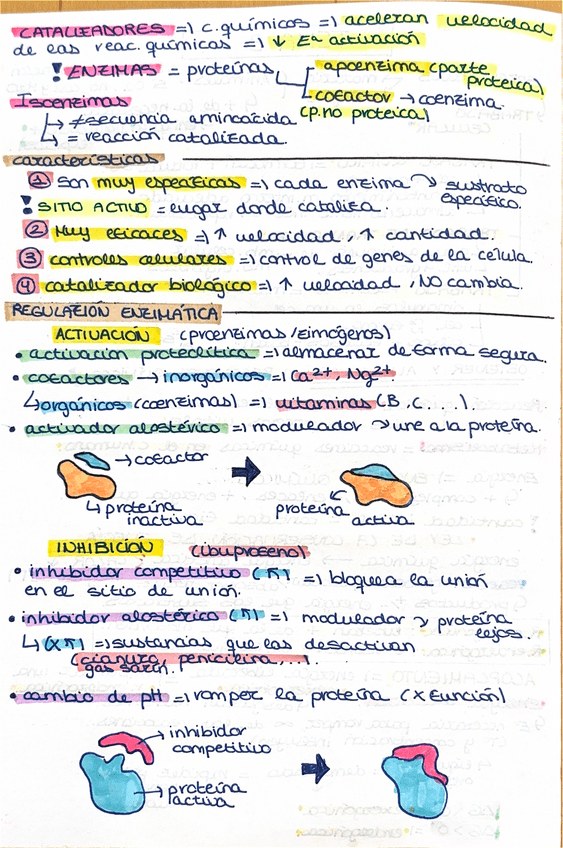 CATALIZADORES => c.químicos => aceleran velocidad
de las reac. químicas => ↓ Eª activación
! ENZIMAS = proteínas
apoenzima (parte proteica)
cofactor → coenzima
(p.no proteica)
Isoenzimas
↳ ≠ secuencia aminoácida
↳ = reacción catalizada.
características
① Son muy específicas => cada enzima ↝ sustrato específico.
! SITIO ACTIVO = lugar donde cataliza.
② Muy eficaces => ↑ velocidad, ↑ cantidad.
③ controles celulares => control de genes de la célula.
④ catalizador biológico => ↑ velocidad, NO cambia.
REGULACIÓN ENZIMÁTICA
ACTIVACIÓN (proenzimas/zimógenos)
• activación proteolítica => almacenar de forma segura.
• cofactores → inorgánicos => Ca²⁺, Mg²⁺.
↳ orgánicos (coenzimas) => vitaminas (B, C, ...).
• activador alostérico => modulador ↝ une a la proteína.
→ cofactor
↳ proteína inactiva
proteína activa
INHIBICIÓN (ibuprofeno)
• inhibidor competitivo (π) => bloquea la unión
en el sitio de unión.
• inhibidor alostérico (π) => modulador ↝ proteína lejos.
↳ (xπ) => sustancias que las desactivan
(cianuro, penicilina, ...)
gas sarín.
• cambio de pH => romper la proteína (x función)
→ inhibidor competitivo
→ proteína activa